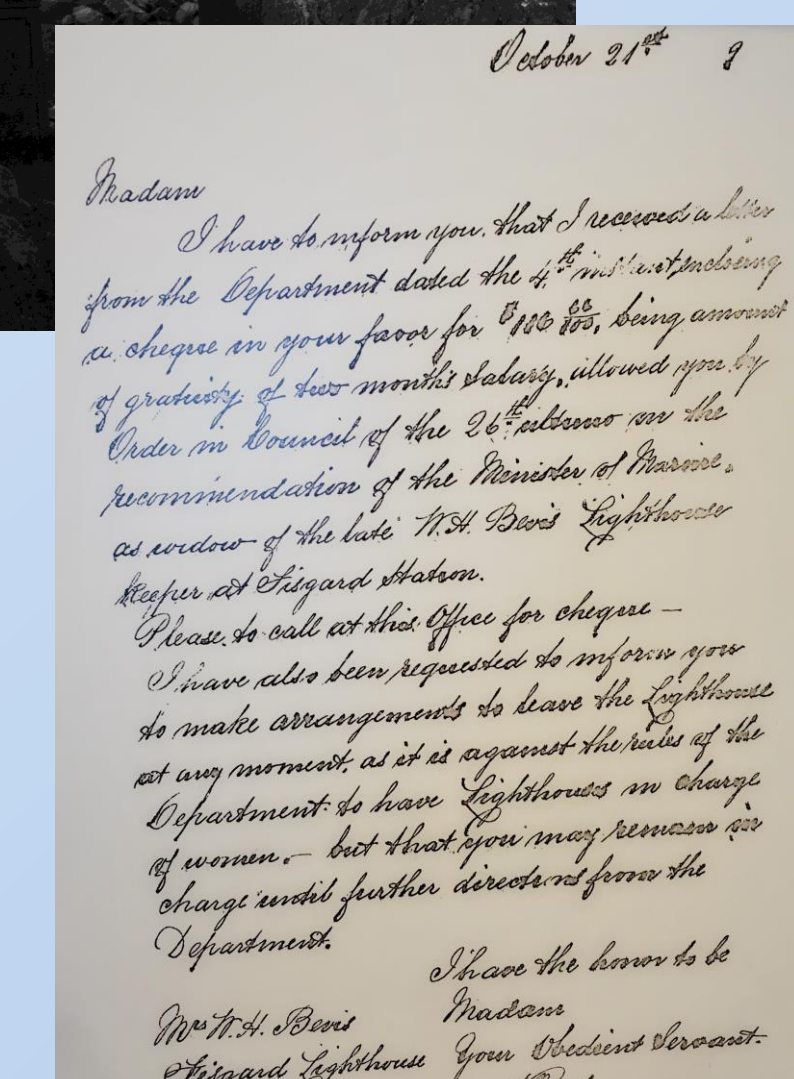 October 21st 9
Madam
I have to inform you that I received a letter
from the Department dated the 4th instant, enclosing
a cheque in your favor for $ 66/100, being amount
of gratuity of two months Salary, allowed you by
Order in Council of the 26th ultimo on the
recommendation of the Minister of Marine.
as widow of the late W. H. Bevis Lighthouse
keeper at Fisgard Station.
Please to call at this Office for cheque —
I have also been requested to inform you
to make arrangements to leave the Lighthouse
at any moment, as it is against the rules of the
Department to have Lighthouses in charge
of women. — but that you may remain in
charge until further directions from the
Department.
I have the honor to be
Madam
Mrs W. H. Bevis
Fisgard Lighthouse Your Obedient Servant.